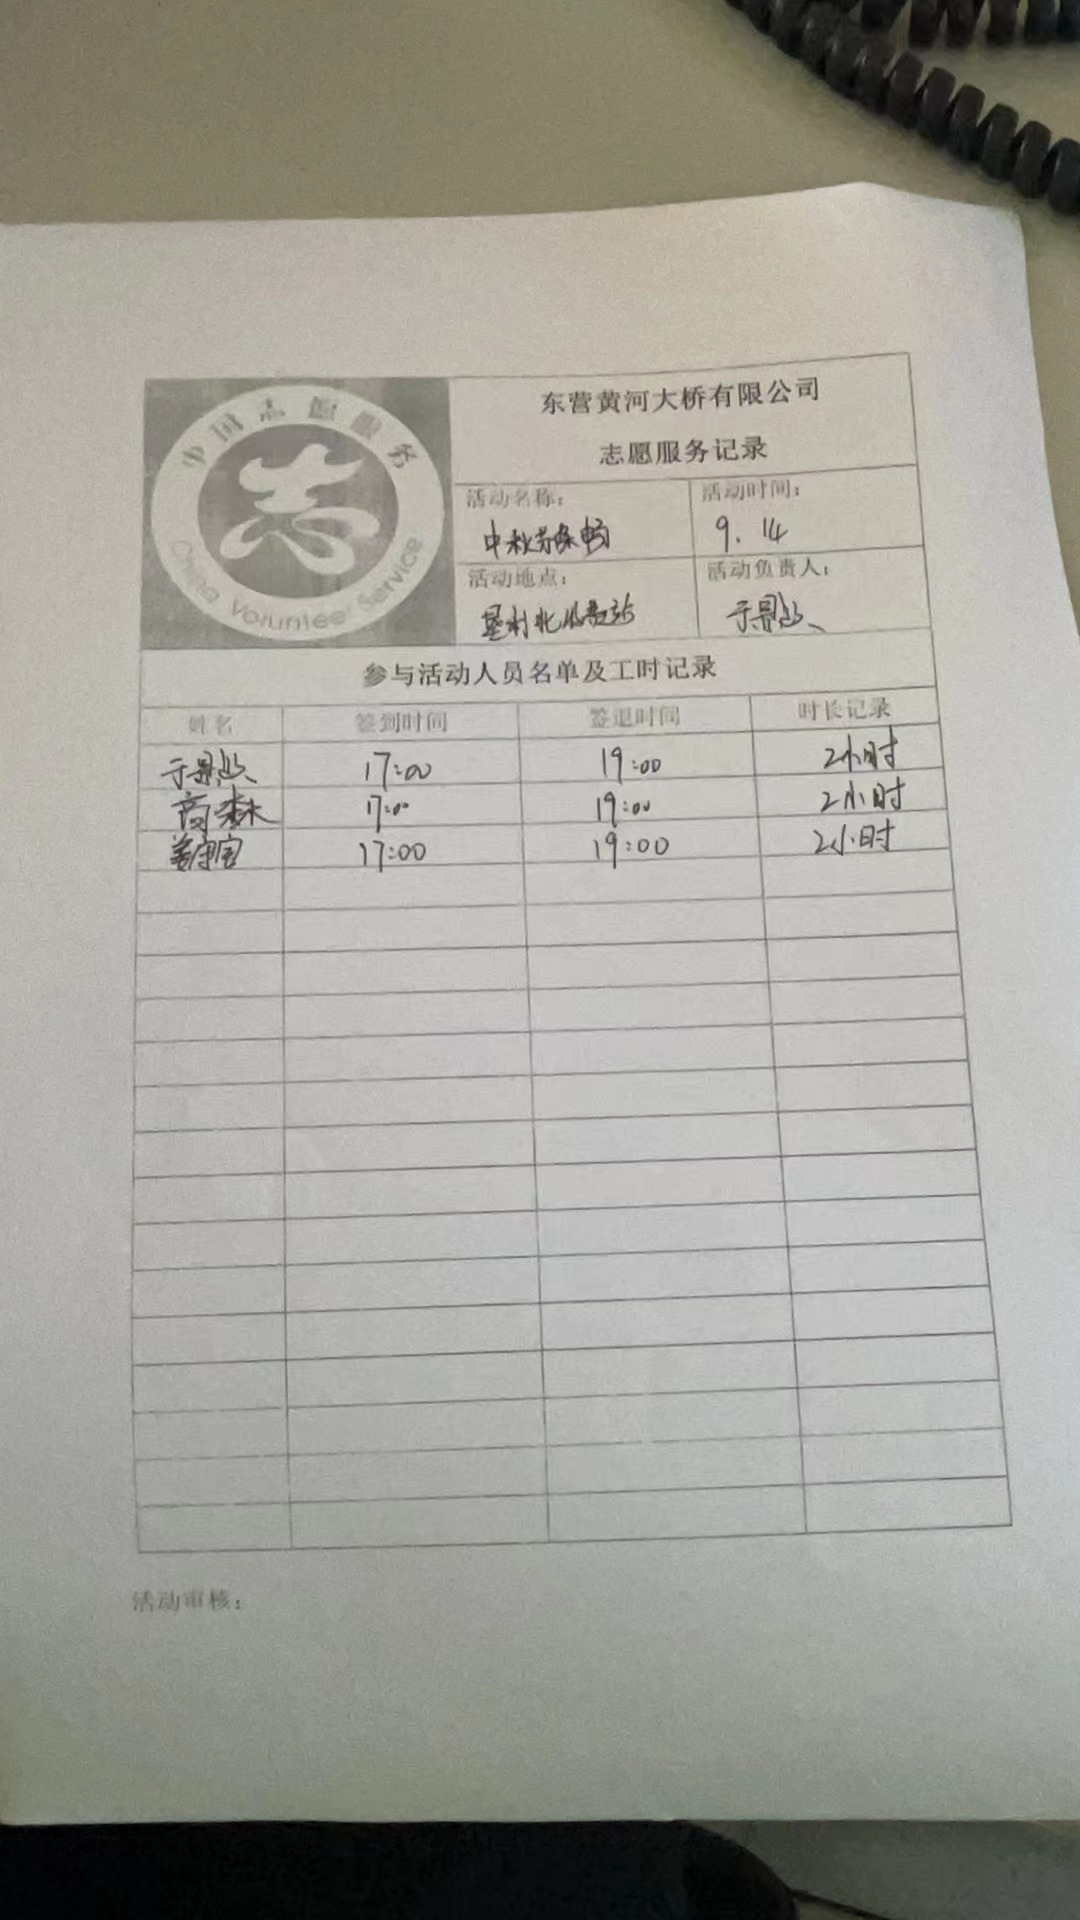 中国志愿服务
志
China Volunteer Service
东营黄河大桥有限公司
志愿服务记录
活动名称：
活动时间：
中秋 保畅
9.14
活动地点：
活动负责人：
垦利北收费站
于
参与活动人员名单及工时记录
姓名 签到时间 签退时间 时长记录
于 17:00 19:00 2小时
商森 17:00 19:00 2小时
姜守宝 17:00 19:00 2小时
活动审核：